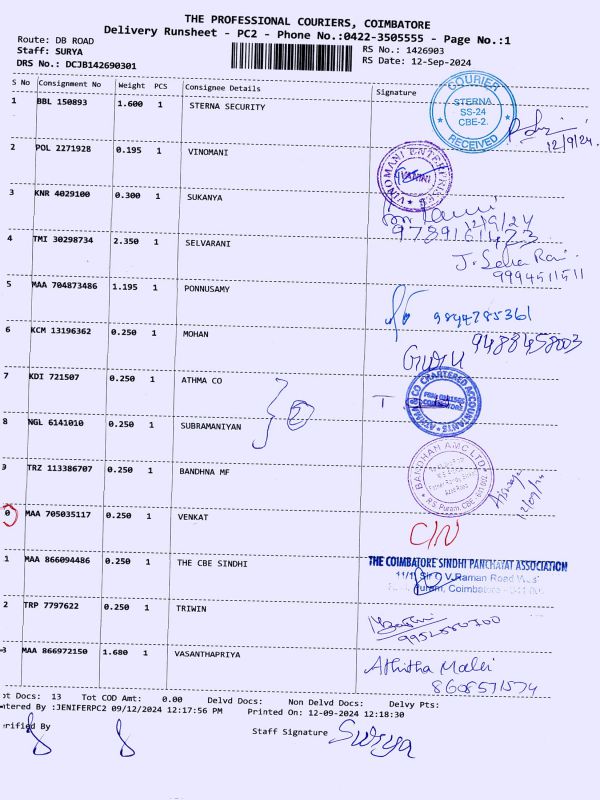 THE PROFESSIONAL COURIERS, COIMBATORE
Delivery Runsheet - PC2 - Phone No.:0422-3505555 - Page No.:1
Route: DB ROAD
Staff: SURYA
DRS No.: DCJB142690301
RS No.: 1426903
RS Date: 12-Sep-2024
S No Consignment No Weight PCS Consignee Details Signature
1 BBL 150893 1.600 1 STERNA SECURITY
COURIER
STERNA
SS-24
CBE-2.
RECEIVED
12/9/24
2 POL 2271928 0.195 1 VINOMANI
VINOMANI ENTERPRISES
3 KNR 4029100 0.300 1 SUKANYA
12/9/24
4 TMI 30298734 2.350 1 SELVARANI
9994511511
5 MAA 704873486 1.195 1 PONNUSAMY
9894785361
6 KCM 13196362 0.250 1 MOHAN
9488458003
7 KDI 721507 0.250 1 ATHMA CO
CHARTERED ACCOUNTANTS
8 NGL 6141010 0.250 1 SUBRAMANIYAN
9 TRZ 113386707 0.250 1 BANDHNA MF
BANDHAN AMC LTD
R S Puram, CBE - 641 002
12/09/24
0 MAA 705035117 0.250 1 VENKAT
C/N
1 MAA 866094486 0.250 1 THE CBE SINDHI
THE COIMBATORE SINDHI PANCHAYAT ASSOCIATION
2 TRP 7797622 0.250 1 TRIWIN
3 MAA 866972150 1.680 1 VASANTHAPRIYA
Athitha Malai
8608571574
ot Docs: 13 Tot COD Amt: 0.00 Delvd Docs: Non Delvd Docs: Delvy Pts:
ntered By :JENIFERPC2 09/12/2024 12:17:56 PM Printed On: 12-09-2024 12:18:30
erified By
Staff Signature Surya